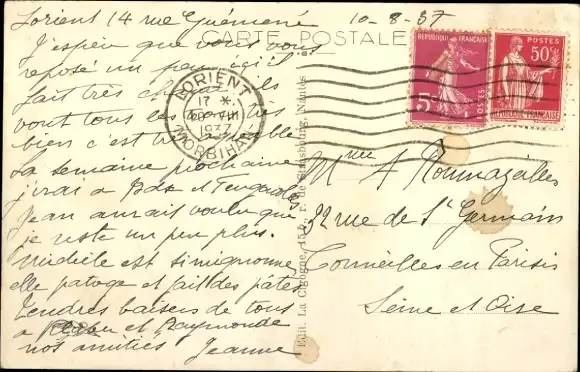 Lorient 14 rue Guémené
10-8-37
CARTE POSTALE
J'espère que vous vous
reposé un peu ici il
fait très chaud ils
vont tous les très
bien c'est
La semaine prochaine
j'irai à et
Jean aurait voulu que
je reste un peu plus.
Michèle est si mignonne
elle patoge et fait des pâtés
Tendres baisers de tous
a et Raymonde
nos amitiés Jeanne
LORIENT
17 *
10 VIII
1937
MORBIHAN
RÉPUBLIQUE FRANÇAISE
5c
POSTES
POSTES
50c
REPUBLIQUE FRANÇAISE
Edit. La Cigogne, r. de Strasbourg, Nantes
Mme A Roumazalles
32 rue de St Germain
Cormeilles en Parisis
Seine et Oise